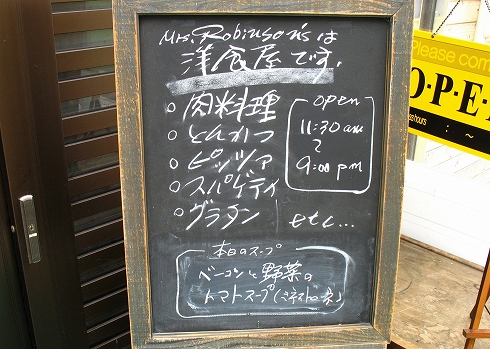 Mrs. Robinson's は
洋食屋です.
○肉料理
○とんかつ
○ピッツァ
○スパゲティ
○グラタン etc...
open
11:30 am
~
9:00 pm
本日のスープ
ベーコンと野菜の
トマトスープ(ミネストローネ)
Please com
O・P・E
hours : ~